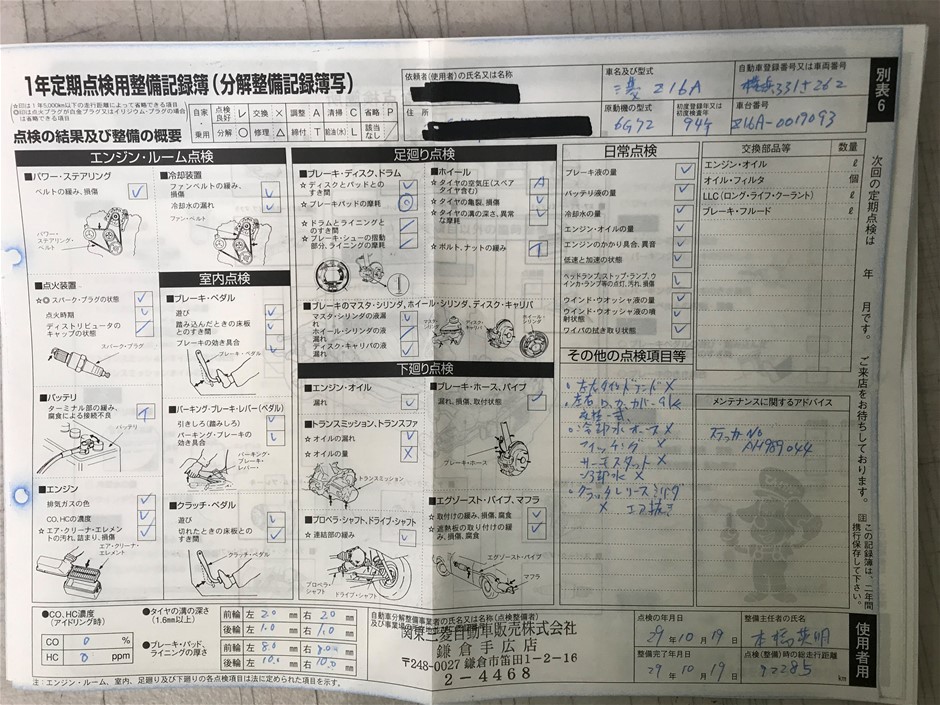 1年定期点検用整備記録簿（分解整備記録簿写）
☆印は1年5,000km以下の走行距離によって省略できる項目
◎印は点火プラグが白金プラグ又はイリジウム・プラグの場合は省略できる項目
点検の結果及び整備の概要
自家・乗用
点検良好 レ 交換 × 調整 A 清掃 C 省略 P
分解 ○ 修理 △ 締付 T 給油(水) L 該当なし ／
依頼者(使用者)の氏名又は名称
住所
車名及び型式
三菱 Z16A
自動車登録番号又は車両番号
331 す 262
原動機の型式
6G72
初度登録年又は初度検査年
94年
車台番号
Z16A-0019093
別表6
エンジン・ルーム点検
■パワー・ステアリング
ベルトの緩み、損傷
パワー・ステアリング・ベルト
■冷却装置
ファンベルトの緩み、損傷
冷却水の漏れ
ファン・ベルト
■点火装置
☆◎ スパーク・プラグの状態
点火時期
ディストリビュータのキャップの状態
スパーク・プラグ
■バッテリ
ターミナル部の緩み、腐食による接続不良
バッテリ
■エンジン
排気ガスの色
CO、HCの濃度
☆エア・クリーナ・エレメントの汚れ、詰まり、損傷
エア・クリーナ・エレメント
室内点検
■ブレーキ・ペダル
遊び
踏み込んだときの床板とのすき間
ブレーキの効き具合
ブレーキ・ペダル
■パーキング・ブレーキ・レバー(ペダル)
引きしろ(踏みしろ)
パーキング・ブレーキの効き具合
パーキング・ブレーキ・レバー
■クラッチ・ペダル
遊び
切れたときの床板とのすき間
クラッチ・ペダル
足廻り点検
■ブレーキ・ディスク、ドラム
☆ディスクとパッドとのすき間
☆ブレーキパッドの摩耗
☆ドラムとライニングとのすき間
☆ブレーキ・シューの摺動部分、ライニングの摩耗
■ホイール
☆タイヤの空気圧(スペアタイヤ含む)
☆タイヤの亀裂、損傷
☆タイヤの溝の深さ、異常な摩耗
☆ボルト、ナットの緩み
■ブレーキのマスタ・シリンダ、ホイール・シリンダ、ディスク・キャリパ
マスタ・シリンダの液漏れ
ホイール・シリンダの液漏れ
ディスク・キャリパの液漏れ
マスタ・シリンダ
ディスク・キャリパ
ホイール・シリンダ
下廻り点検
■エンジン・オイル
漏れ
■トランスミッション、トランスファ
☆オイルの漏れ
☆オイルの量
トランスミッション
■プロペラ・シャフト、ドライブ・シャフト
☆連結部の緩み
プロペラ・シャフト
ドライブ・シャフト
■ブレーキ・ホース、パイプ
漏れ、損傷、取付状態
ブレーキ・ホース
■エグゾースト・パイプ、マフラ
☆取付けの緩み、損傷、腐食
☆遮熱板の取り付けの緩み、損傷、腐食
エグゾースト・パイプ
マフラ
日常点検
ブレーキ液の量
バッテリ液の量
冷却水の量
エンジンオイルの量
エンジンのかかり具合、異音
低速と加速の状態
ヘッドランプ、ストップ・ランプ、ウインカ・ランプ等の点灯、汚れ、損傷
ウインド・ウオッシャ液の量
ウインド・ウオッシャ液の噴射状態
ワイパの拭き取り状態
その他の点検項目等
左右タイロッドエンド×
冷却水ホース×
サーモスタット×
冷却水×
クラッチレリーズシリンダ
× エア抜き
交換部品等 数量
エンジン・オイル ℓ
オイル・フィルタ 個
LLC(ロング・ライフ・クーラント) ℓ
ブレーキ・フルード ℓ
メンテナンスに関するアドバイス
ステッカーNo
AH989044
次回の定期点検は 年 月です。 ご来店をお待ちしております。
注 この記録簿は、二年間携行保存して下さい。
使用者用
●CO、HC濃度(アイドリング時)
CO 0 %
HC 0 ppm
●タイヤの溝の深さ(1.6mm以上)
前輪 左 2.0 mm 右 2.0 mm
後輪 左 1.0 mm 右 1.0 mm
●ブレーキ・パッド、ライニングの厚さ
前輪 左 8.0 mm 右 8.0 mm
後輪 左 10.0 mm 右 10.0 mm
自動車分解整備事業者の氏名又は名称(点検整備者)及び事業場の
関東三菱自動車販売株式会社
鎌倉手広店
〒248-0027 鎌倉市笛田1-2-16
2-4468
点検の年月日
29年 10月 19日
整備完了年月日
29年 10月 19日
整備主任者の氏名
点検(整備)時の総走行距離
92285 km
注：エンジン・ルーム、室内、足廻り及び下廻りの各点検項目は法に定められた項目を示す。